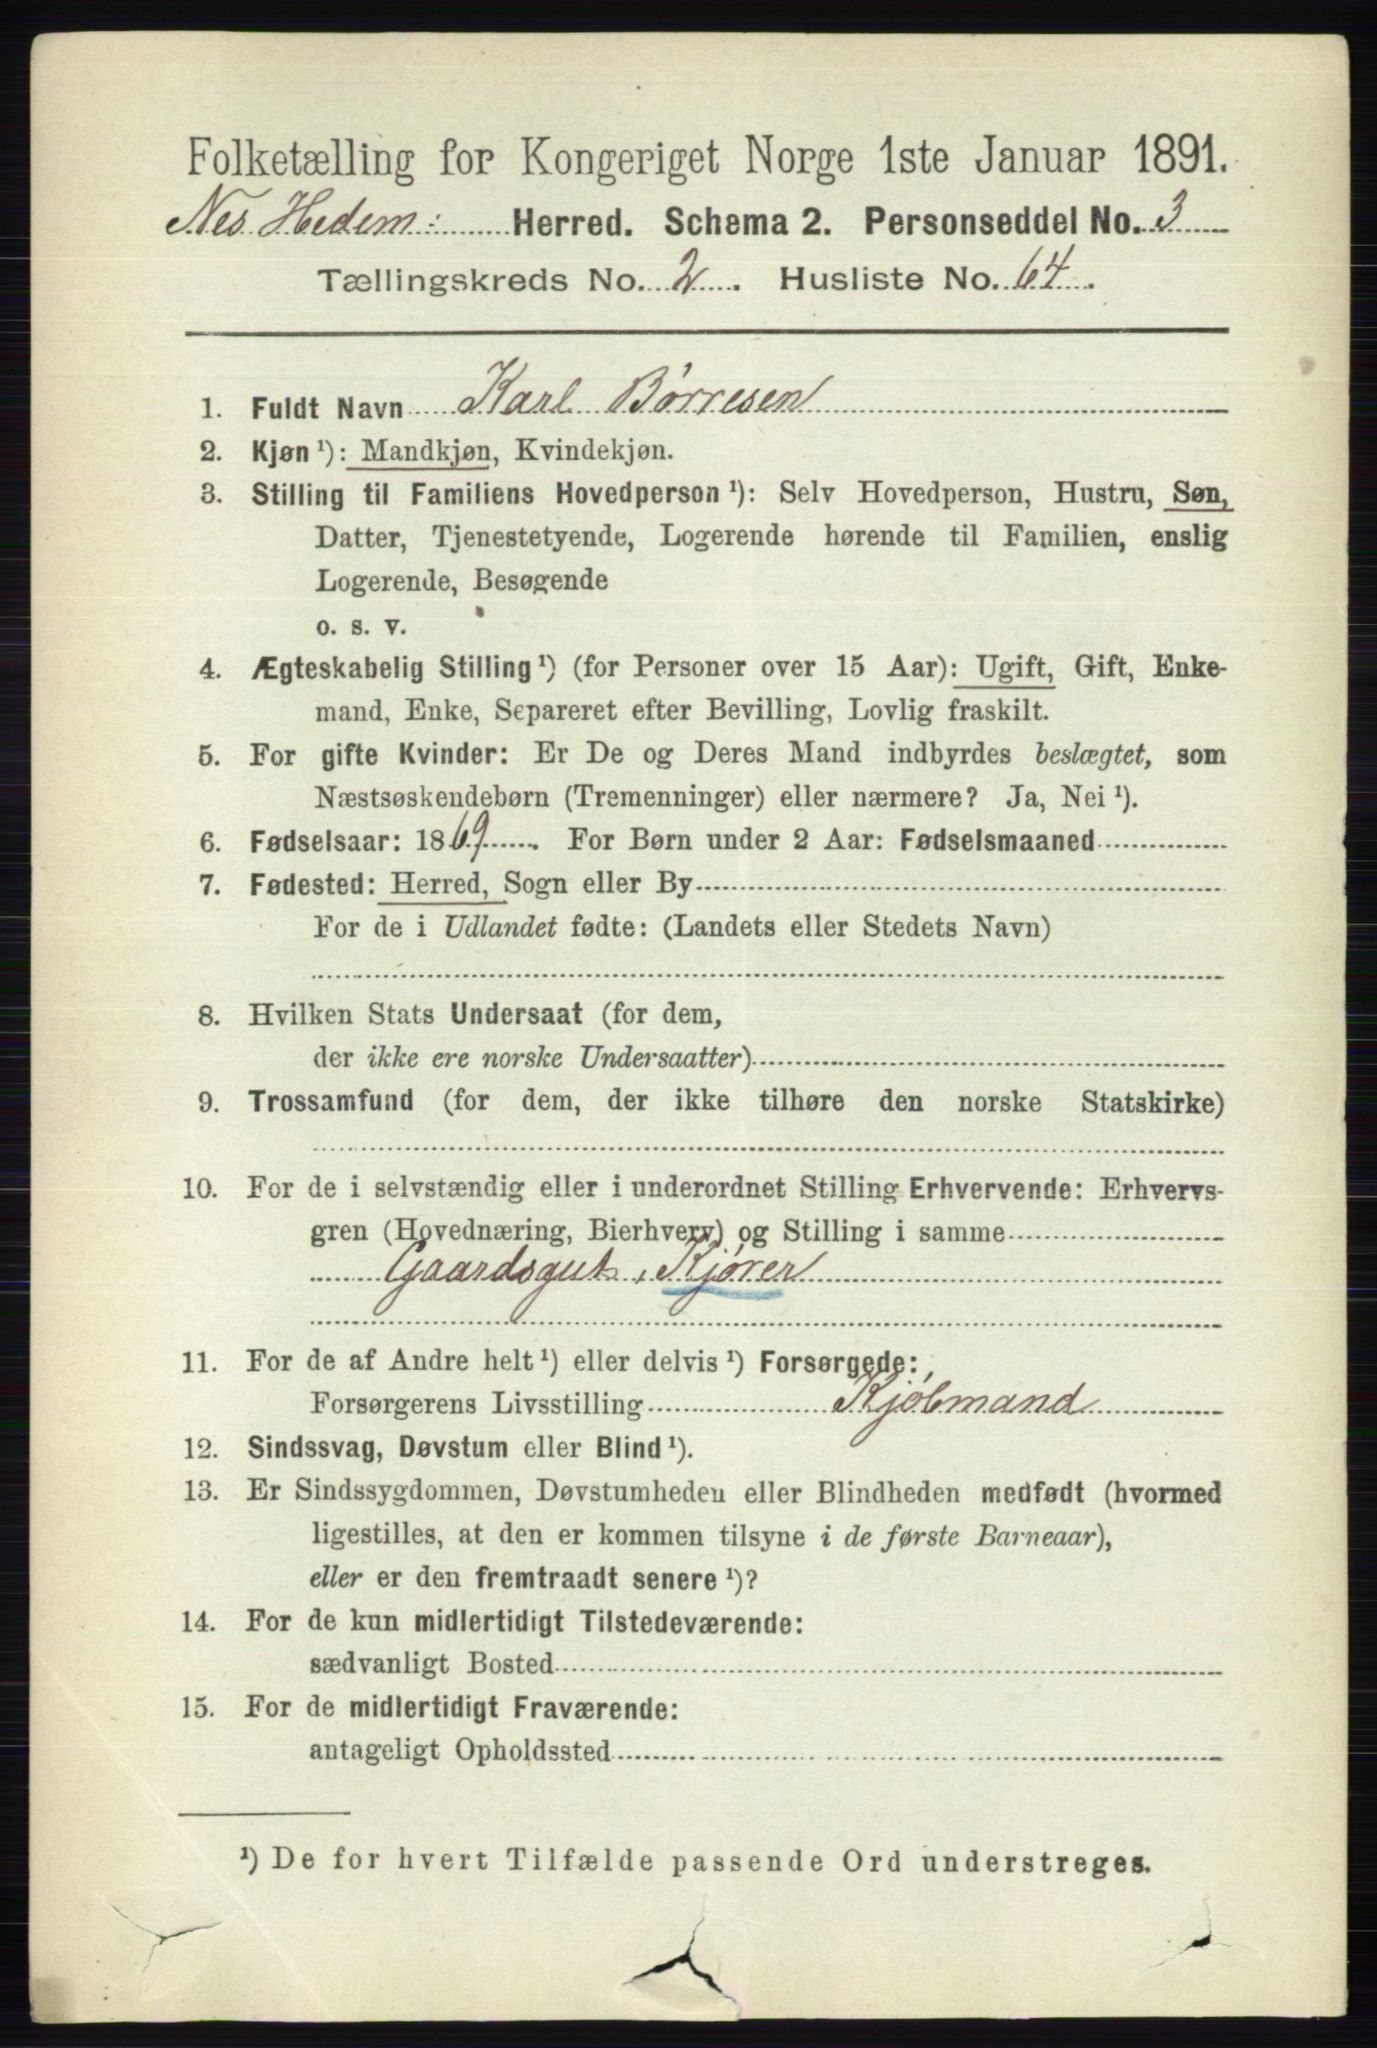 Folketælling for Kongeriget Norge 1ste Januar 1891.
Nes Hedem: Herred. Schema 2. Personseddel No. 3
Tællingskreds No. 2. Husliste No. 64.
1. Fuldt Navn Karl Børresen
2. Kjøn ¹): Mandkjøn, Kvindekjøn.
3. Stilling til Familiens Hovedperson ¹): Selv Hovedperson, Hustru, Søn,
Datter, Tjenestetyende, Logerende hørende til Familien, enslig
Logerende, Besøgende
o. s. v.
4. Ægteskabelig Stilling ¹) (for Personer over 15 Aar): Ugift, Gift, Enke-
mand, Enke, Separeret efter Bevilling, Lovlig fraskilt.
5. For gifte Kvinder: Er De og Deres Mand indbyrdes beslægtet, som
Næstsøskendebørn (Tremenninger) eller nærmere? Ja, Nei ¹).
6. Fødselsaar: 1869. For Børn under 2 Aar: Fødselsmaaned
7. Fødested: Herred, Sogn eller By
For de i Udlandet fødte: (Landets eller Stedets Navn)
8. Hvilken Stats Undersaat (for dem,
der ikke ere norske Undersaatter)
9. Trossamfund (for dem, der ikke tilhøre den norske Statskirke)
10. For de i selvstændig eller i underordnet Stilling Erhvervende: Erhvervs-
gren (Hovednæring, Bierhverv) og Stilling i samme
Gaardsgut, Kjører
11. For de af Andre helt ¹) eller delvis ¹) Forsørgede:
Forsørgerens Livsstilling Kjøbmand
12. Sindssvag, Døvstum eller Blind ¹).
13. Er Sindssygdommen, Døvstumheden eller Blindheden medfødt (hvormed
ligestilles, at den er kommen tilsyne i de første Barneaar),
eller er den fremtraadt senere ¹)?
14. For de kun midlertidigt Tilstedeværende:
sædvanligt Bosted
15. For de midlertidigt Fraværende:
antageligt Opholdssted
¹) De for hvert Tilfælde passende Ord understreges.